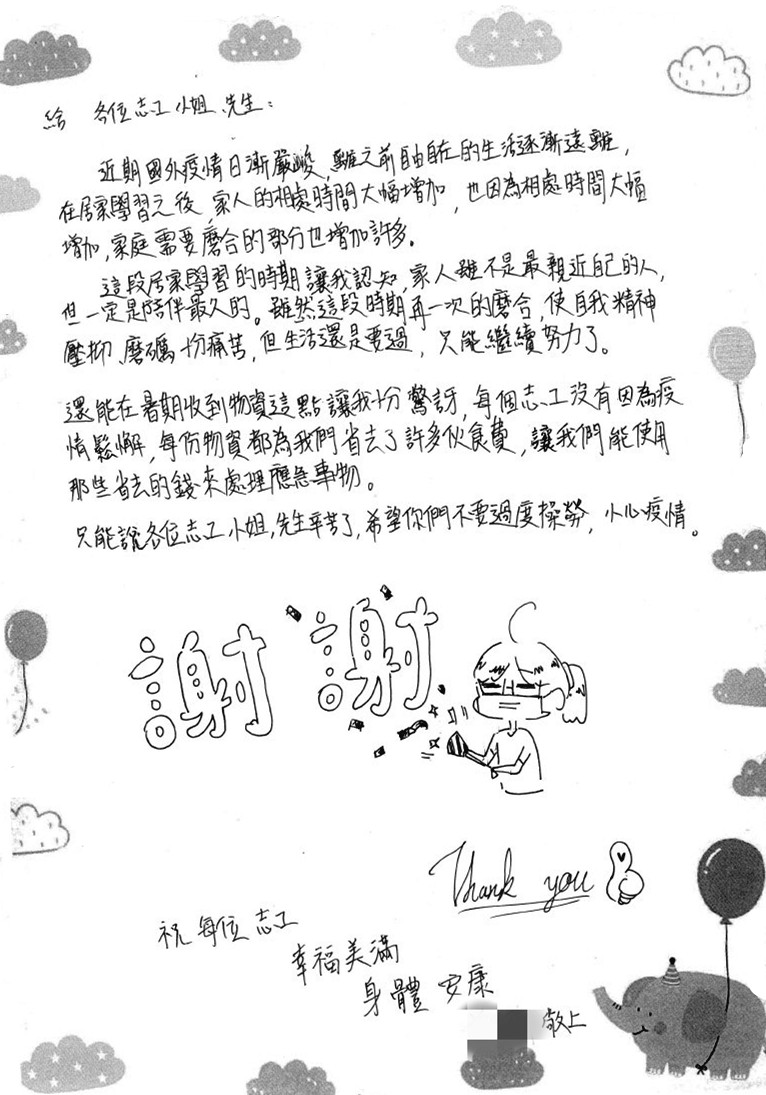 給 各位志工小姐、先生:
近期國外疫情日漸嚴峻,離之前自由自在的生活逐漸遠離,
在居家學習之後,家人的相處時間大幅增加,也因為相處時間大幅
增加,家庭需要磨合的部分也增加許多。
這段居家學習的時期讓我認知,家人雖不是最親近自己的人,
但一定是陪伴最久的。雖然這段時期再一次的磨合,使自我精神
壓抑、磨礪十份痛苦,但生活還是要過,只能繼續努力了。
還能在暑期收到物資這點讓我十分驚訝,每個志工沒有因為疫
情鬆懈,每份物資都為我們省去了許多伙食費,讓我們能使用
那些省去的錢來處理應急事物。
只能說各位志工小姐,先生辛苦了,希望你們不要過度操勞,小心疫情。
謝謝
Thank you
祝 每位志工
幸福美滿
身體安康
敬上